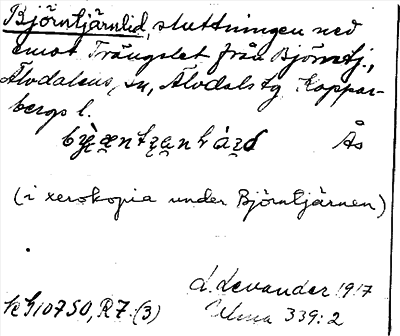 Björntjärnlid, sluttningen ned
emot Trängslet från Björntj.,
Älvdalens sn, Älvdals tg Koppar-
bergs l.
Ås
(i xerokopia under Björntjärnen)
L. Levander 1917
KG10750, R7. (3) Ulma 339:2